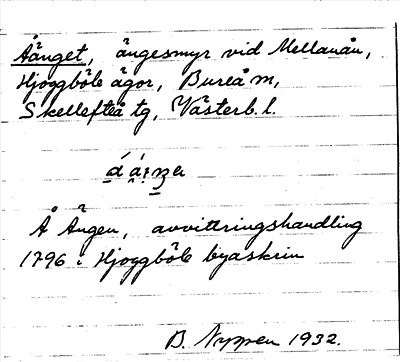 Åänget, ängesmyr vid Mellanån,
Hjoggböle ägor, Bureå m,
Skellefteå tg, Västerb. l.
Å Ängen, avvittringshandling
1796 i Hjoggböle byaskrin
B. Nyppen 1932.